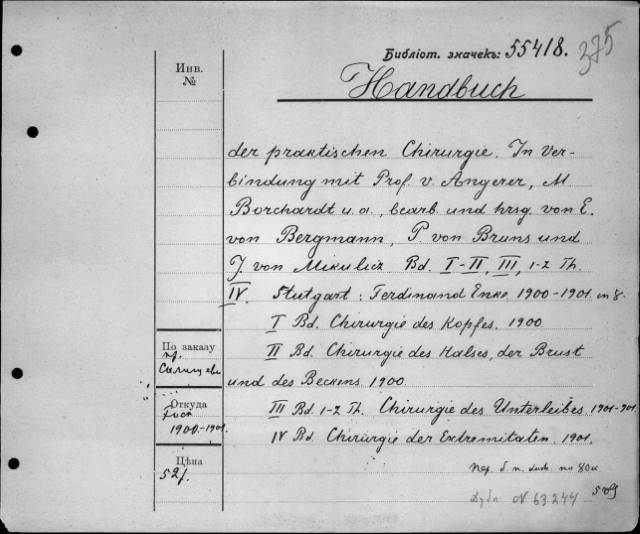 Библіот. значекъ: 55418.
375
Инв.
№
Handbuch
der praktischen Chirurgie. In Ver-
bindung mit Prof. v. Angerer, M
Borchardt u. a., bearb. und hrsg. von E.
von Bergmann, P. von Bruns und
J. von Mikulicz Bd. I-II, III, 1-2 Th.
IV. Stuttgart: Ferdinand Enke 1900-1901. in 8.
I Bd. Chirurgie des Kopfes. 1900.
II Bd. Chirurgie des Halses, der Brust
und des Beckens. 1900.
III Bd. 1-2 Th. Chirurgie des Unterleibes. 1901-1901.
IV Bd. Chirurgie der Extremitäten. 1901.
По заказу
пр.
Откуда
1900-1901.
Цѣна
52 р.
№ 63244